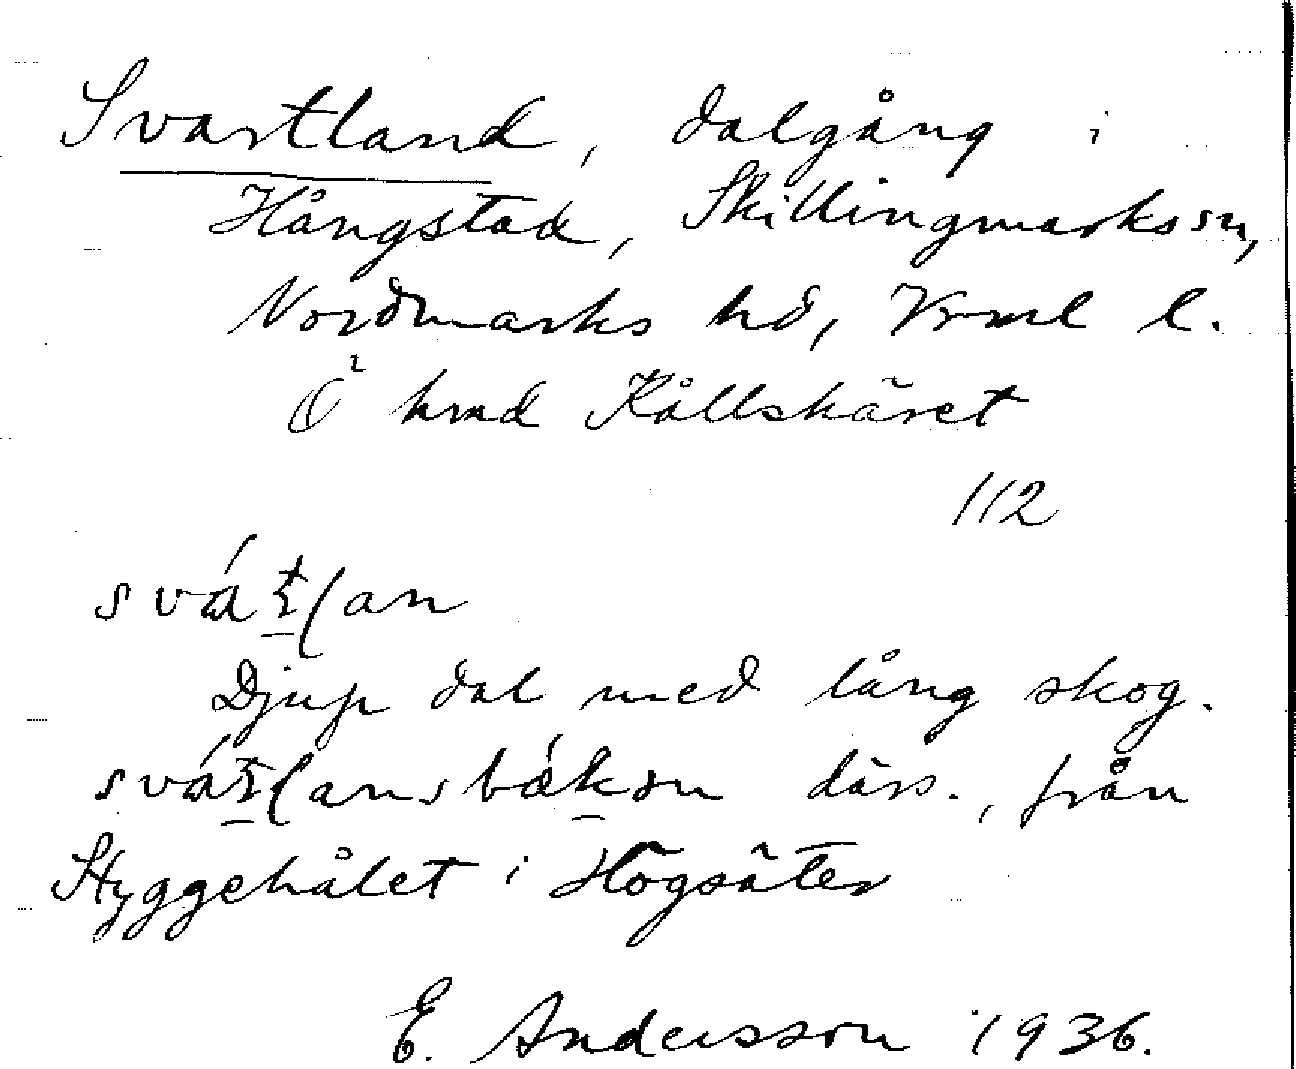 Svartland, dalgång i
Hångstad, Skillingmarks sn,
Nordmarks hd, Vrml l.
Ö kmd Kållskäret
112
Djup dal med lång skog.
därs., från
Styggehålet i Högsäter
E. Andersson 1936.